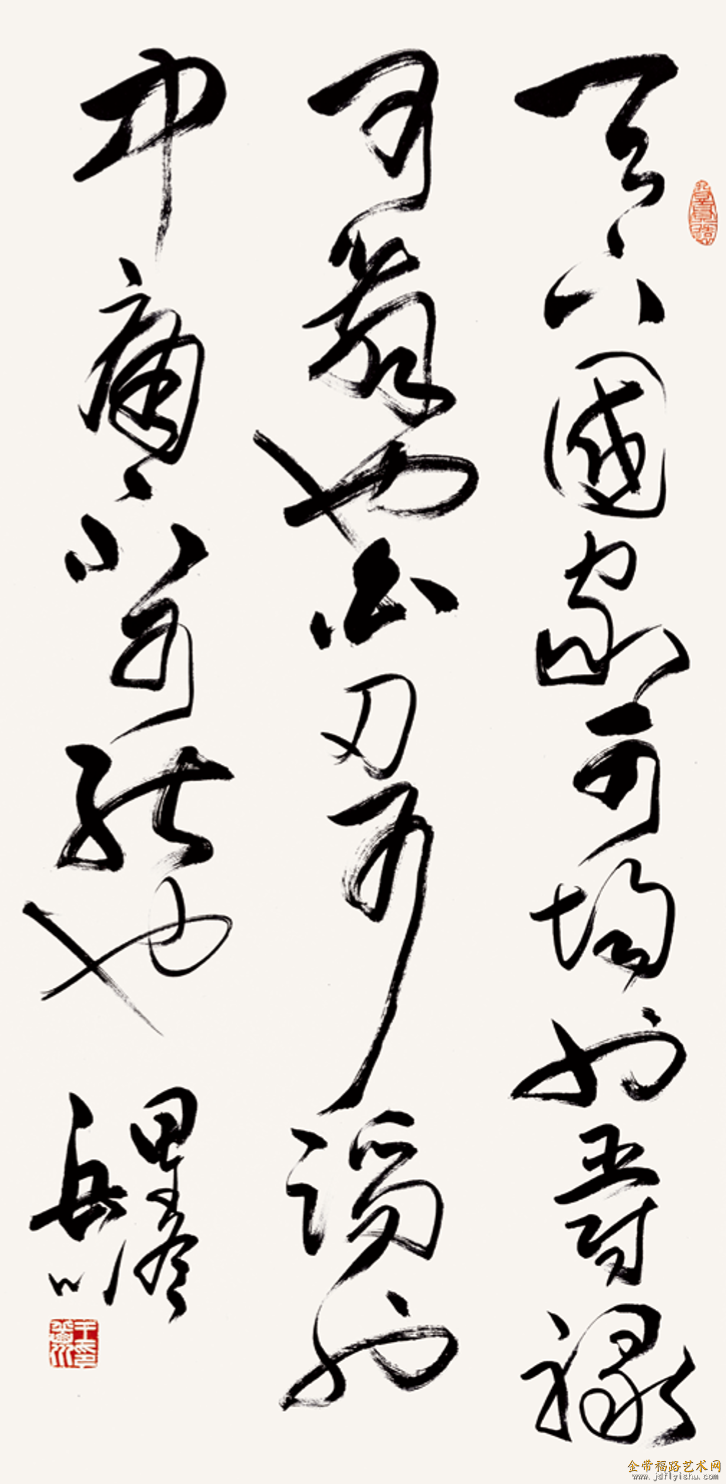 天下國家可均也爵祿
可辭也白刃可蹈也
中庸不可能也
金带福路艺术网
www.jsflyishu.com